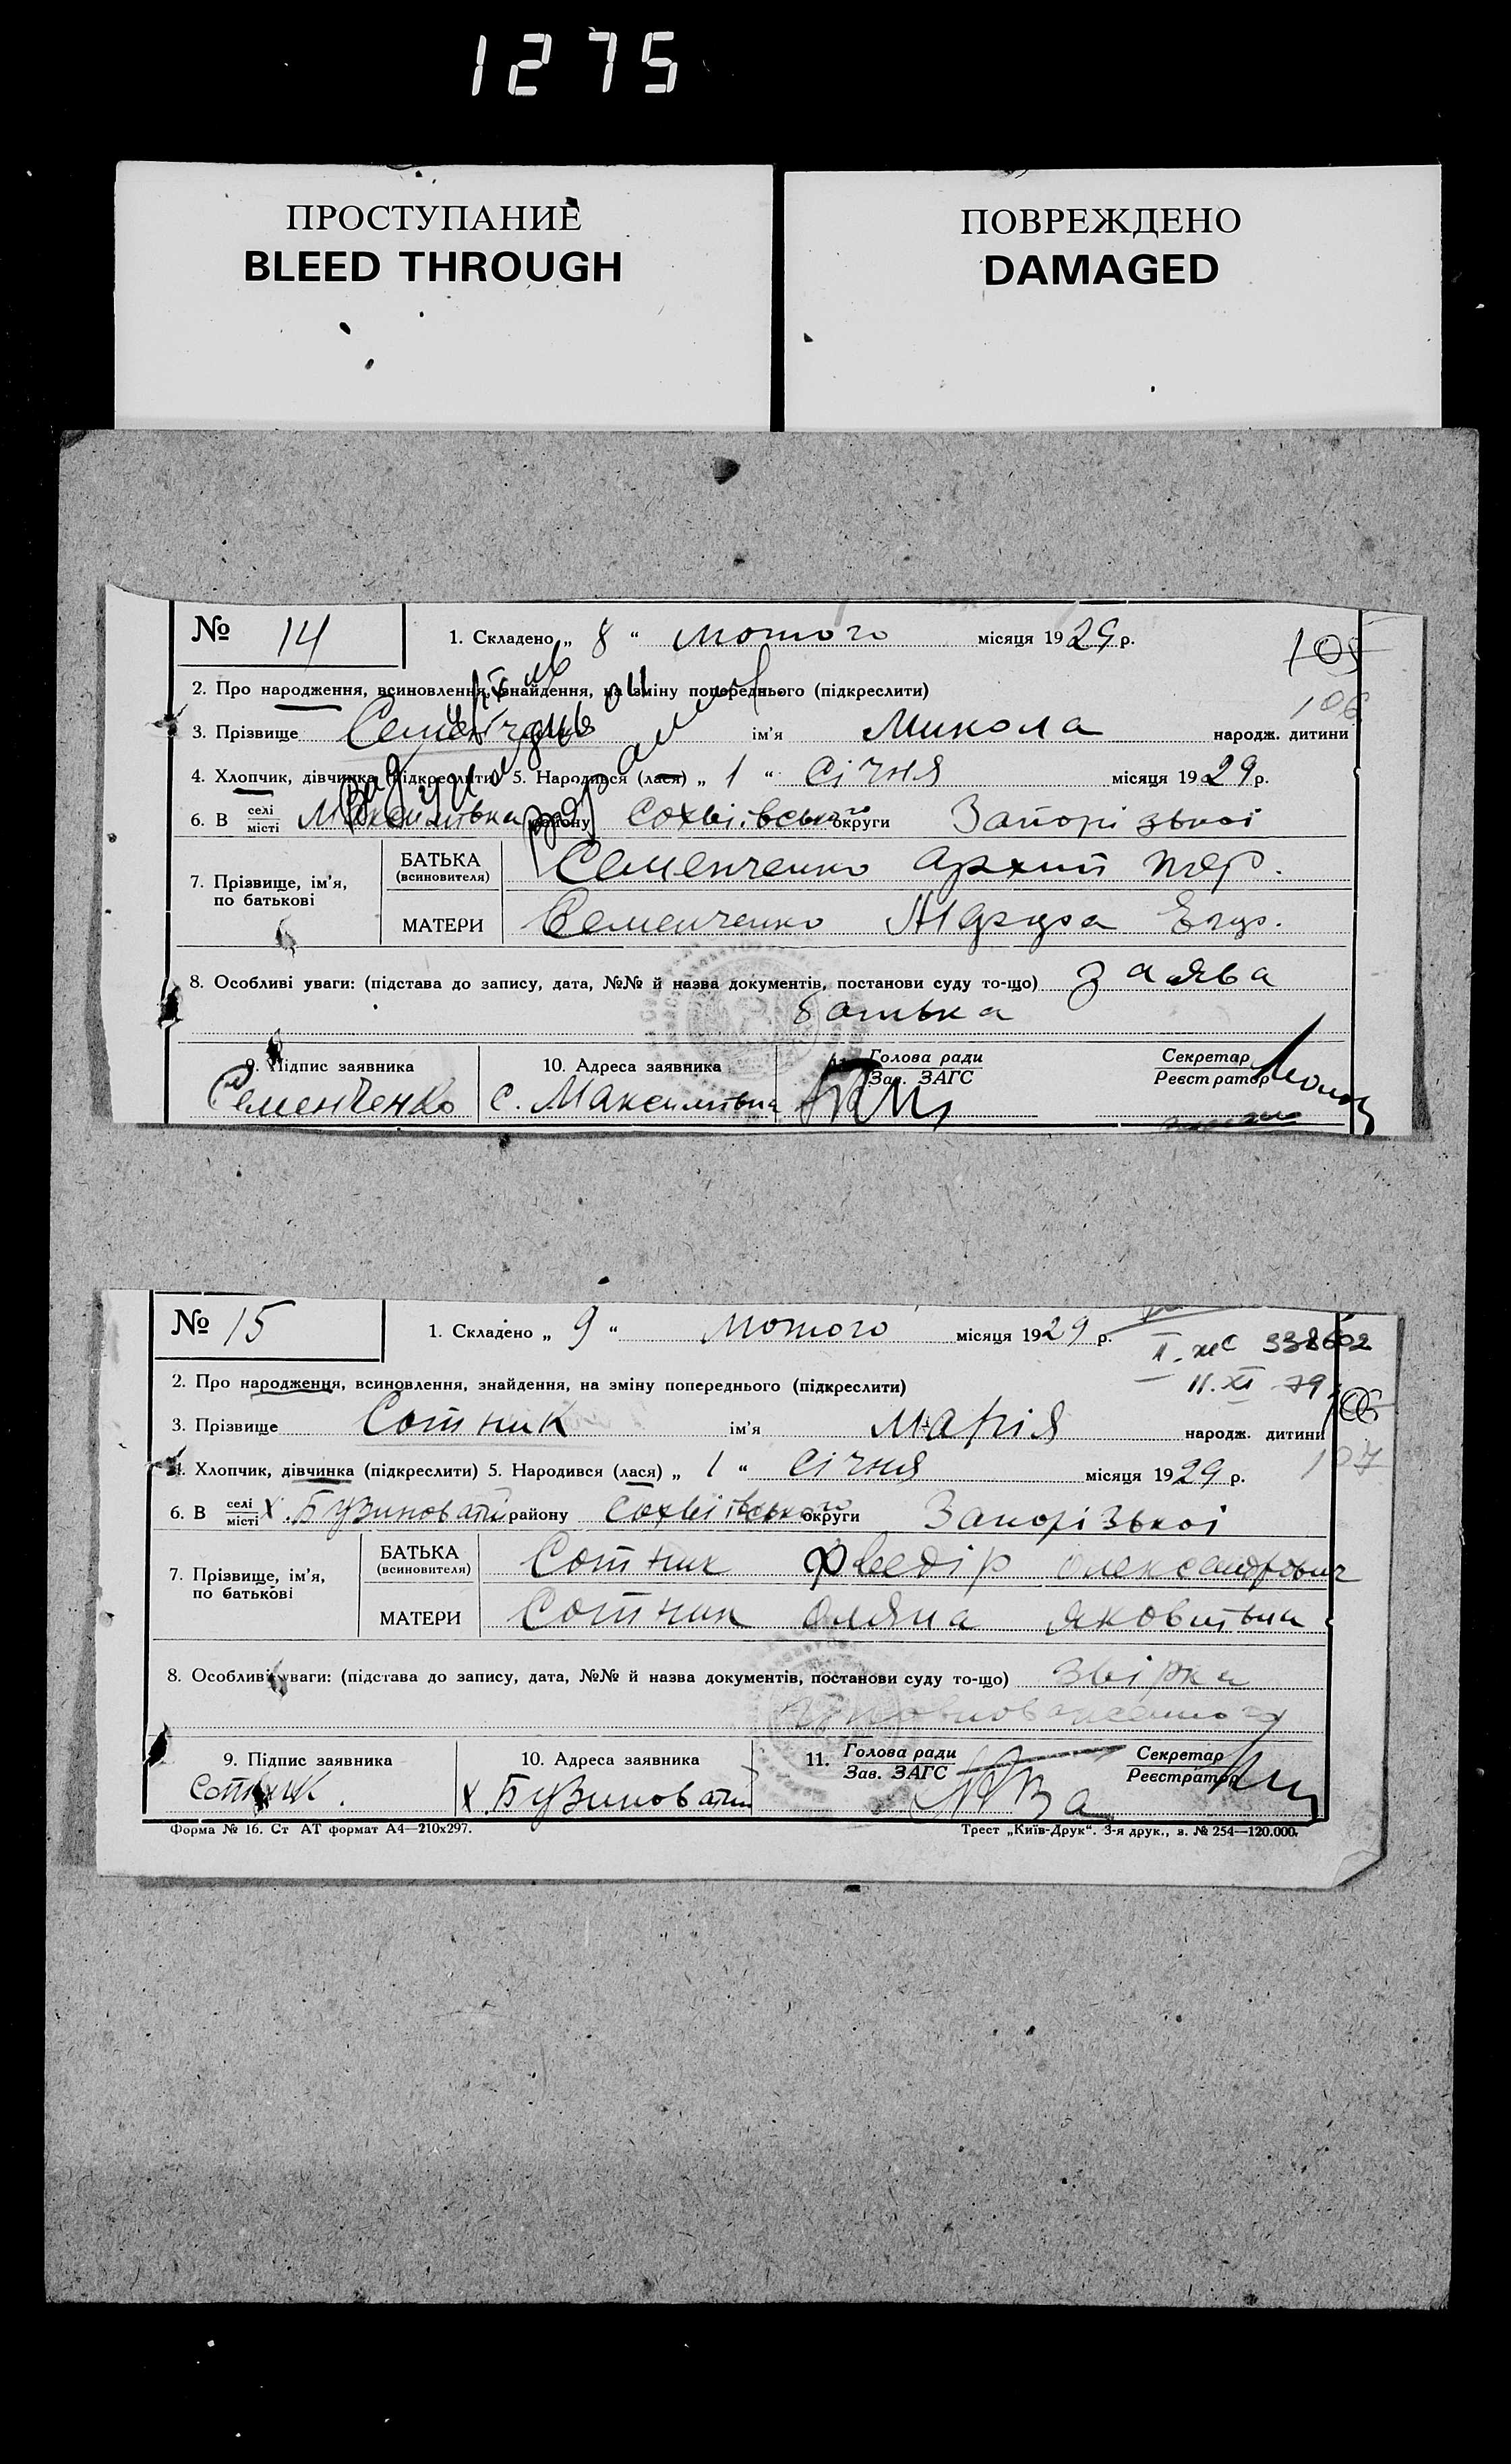 1275
ПРОСТУПАНИЕ
BLEED THROUGH
ПОВРЕЖДЕНО
DAMAGED
№ 14
1. Складено „ 8 “ лютого місяця 1929 р.
105
106
2. Про народження, всиновлення, знайдення, на зміну попереднього (підкреслити)
3. Прізвище Семенченко ім'я Микола народж. дитини
4. Хлопчик, дівчинка (підкреслити) 5. Народився (лася) „ 1 “ Січня місяця 1929 р.
6. В селі місті Максимівка району округи Запорізької
7. Прізвище, ім'я, по батькові
БАТЬКА (всиновителя) Семенченко Архип
МАТЕРИ Семенченко
8. Особливі уваги: (підстава до запису, дата, №№ й назва документів, постанови суду то-що) заява
батька
9. Підпис заявника
10. Адреса заявника
11. Голова ради Зав. ЗАГС
Секретар Реєстратор
Семенченко
с. Максимівка
№ 15
1. Складено „ 9 “ лютого місяця 1929 р.
338602
11. XI 79
2. Про народження, всиновлення, знайдення, на зміну попереднього (підкреслити)
3. Прізвище Сотник ім'я Марія народж. дитини
107
4. Хлопчик, дівчинка (підкреслити) 5. Народився (лася) „ 1 “ Січня місяця 1929 р.
6. В селі місті х. Бузиноватий району округи Запорізької
7. Прізвище, ім'я, по батькові
БАТЬКА (всиновителя) Сотник Олександрович
МАТЕРИ Сотник Оляна Яковлівна
8. Особливі уваги: (підстава до запису, дата, №№ й назва документів, постанови суду то-що)
9. Підпис заявника
10. Адреса заявника
11. Голова ради Зав. ЗАГС
Секретар Реєстратор
Сотник.
х. Бузиноватий
Форма № 16. Ст АТ формат А4—210х297.
Трест „Київ-Друк“. 3-я друк., з. № 254—120.000.